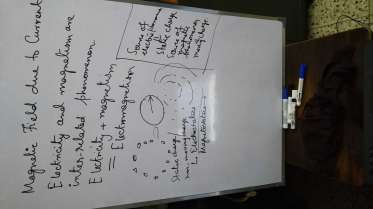 Magnetic Field due to Current
Electricity and magnetism are
inter-related phenomenon
Electricity + magnetism
= Electromagnetism
Source of
Static charge
Source of
moving charge
Static charge
non moving charge
↳ Electrostatics
Magnetostatics